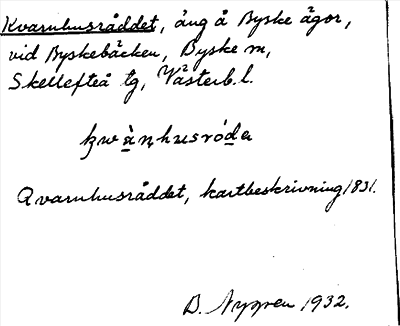 Kvarnhusråddet, äng å Byske ägor,
vid Byskebäcken, Byske sn,
Skellefteå tg, Västerb. l.
Qvarnhusråddet, kartbeskrivning 1831.
B. Nygren 1932.